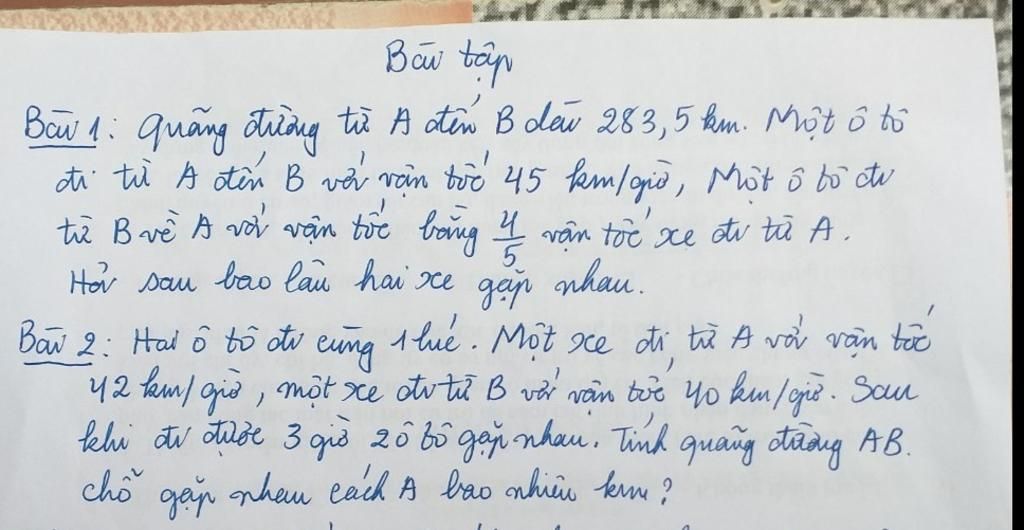 Bài tập
Bài 1: Quãng đường từ A đến B dài 283,5 km. Một ô tô
đi từ A đến B với vận tốc 45 km/giờ, Một ô tô đi
từ B về A với vận tốc bằng 4/5 vận tốc xe đi từ A.
Hỏi sau bao lâu hai xe gặp nhau.
Bài 2: Hai ô tô đi cùng 1 lúc. Một xe đi từ A với vận tốc
42 km/giờ, một xe đi từ B với vận tốc 40 km/giờ. Sau
khi đi được 3 giờ 2 ô tô gặp nhau. Tính quãng đường AB.
chỗ gặp nhau cách A bao nhiêu km?